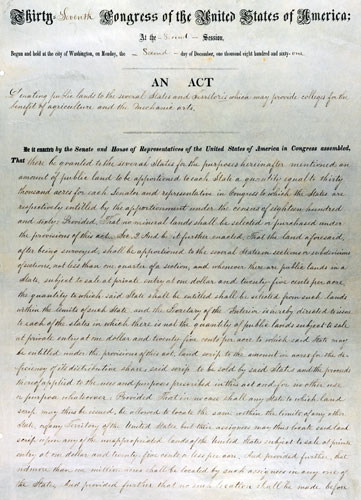 Thirty-Seventh Congress of the United States of America:
At the Second Session,
Begun and held at the city of Washington, on Monday, the Second day of December, one thousand eight hundred and sixty-one
AN ACT
Donating public lands to the several States and Territories which may provide colleges for the
benefit of agriculture and the Mechanic arts.
Be it enacted by the Senate and House of Representatives of the United States of America in Congress assembled,
That there be granted to the several States for the purposes hereinafter mentioned an
amount of public land to be apportioned to each State a quantity equal to thirty
thousand acres for each Senator and representative in Congress to which the States are
respectively entitled by the apportionment under the census of eighteen hundred
and sixty; Provided, That no mineral lands shall be selected or purchased under
the provisions of this act. Sec. 2. And be it further enacted, That the land aforesaid,
after being surveyed, shall be apportioned to the several States in sections or subdivisions
of sections, not less than one quarter of a section; and whenever there are public lands in a
State, subject to sale at private entry at one dollar and twenty five cents per acre,
the quantity to which said State shall be entitled shall be selected from such lands
within the limits of such State and the Secretary of the Interior is hereby directed to issue
to each of the states in which there is not the quantity of public lands subject to sale
at private entry at one dollar and twenty five cents per acre to which said State may
be entitled under the provisions of this act, land scrip to the amount in acres for the de-
ficiency of its distributive share: said scrip to be sold by said States and the proceeds
thereof applied to the uses and purposes prescribed in this act and for no other use
or purpose whatsoever: Provided, That in no case shall any State to which land
scrip may thus be issued, be allowed to locate the same within the limits of any other
State, or of any Territory of the United States but their assignees may thus locate said land
scrip upon any of the unappropriated lands of the United States subject to sale at private
entry at one dollar and twenty five cents or less per acre: And provided further, that
not more than one million acres shall be located by such assignees in any one of
the States: And provided further, that no such location shall be made before